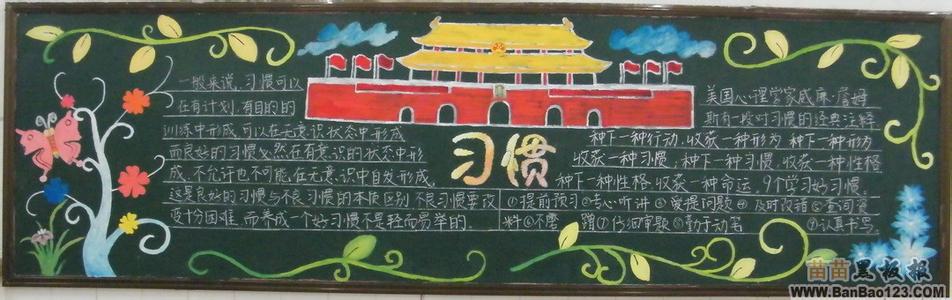 一般来说,习惯可以
在有计划,有目的的
训练中形成,可以在无意识状态中形成
而良好的习惯必然在有意识的状态中形
成,不允许也不可能,在无意识中自发形成,
这是良好的习惯与不良习惯的本质区别.不良习惯要改
变十分困难,而养成一个好习惯不是轻而易举的.
习惯
美国心理学家威廉·詹姆
斯有一段对习惯的经典注释
种下一种行动,收获一种形为,种下一种形为
收获一种习惯,种下一种习惯,收获一种性格
种下一种性格,收获一种命运,9个学习好习惯.
①提前预习②专心听讲③爱提问题④及时改错⑤查阅资
料⑥不磨蹭⑦仔细审题⑧勤于动笔⑨认真书写.
苗苗黑板报
www.BanBao123.com